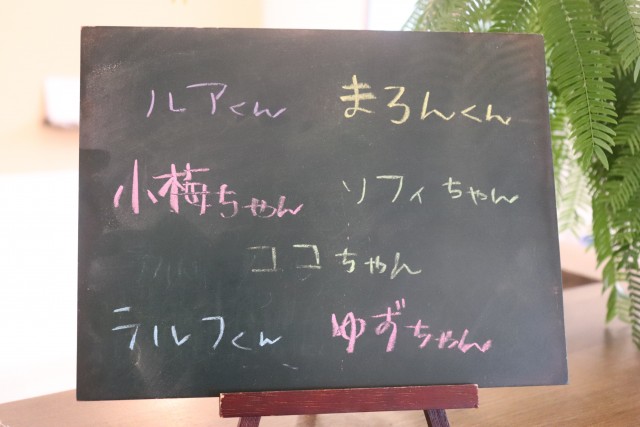 ルアくん まろんくん
小梅ちゃん ソフィちゃん
ココちゃん
ラルフくん ゆずちゃん